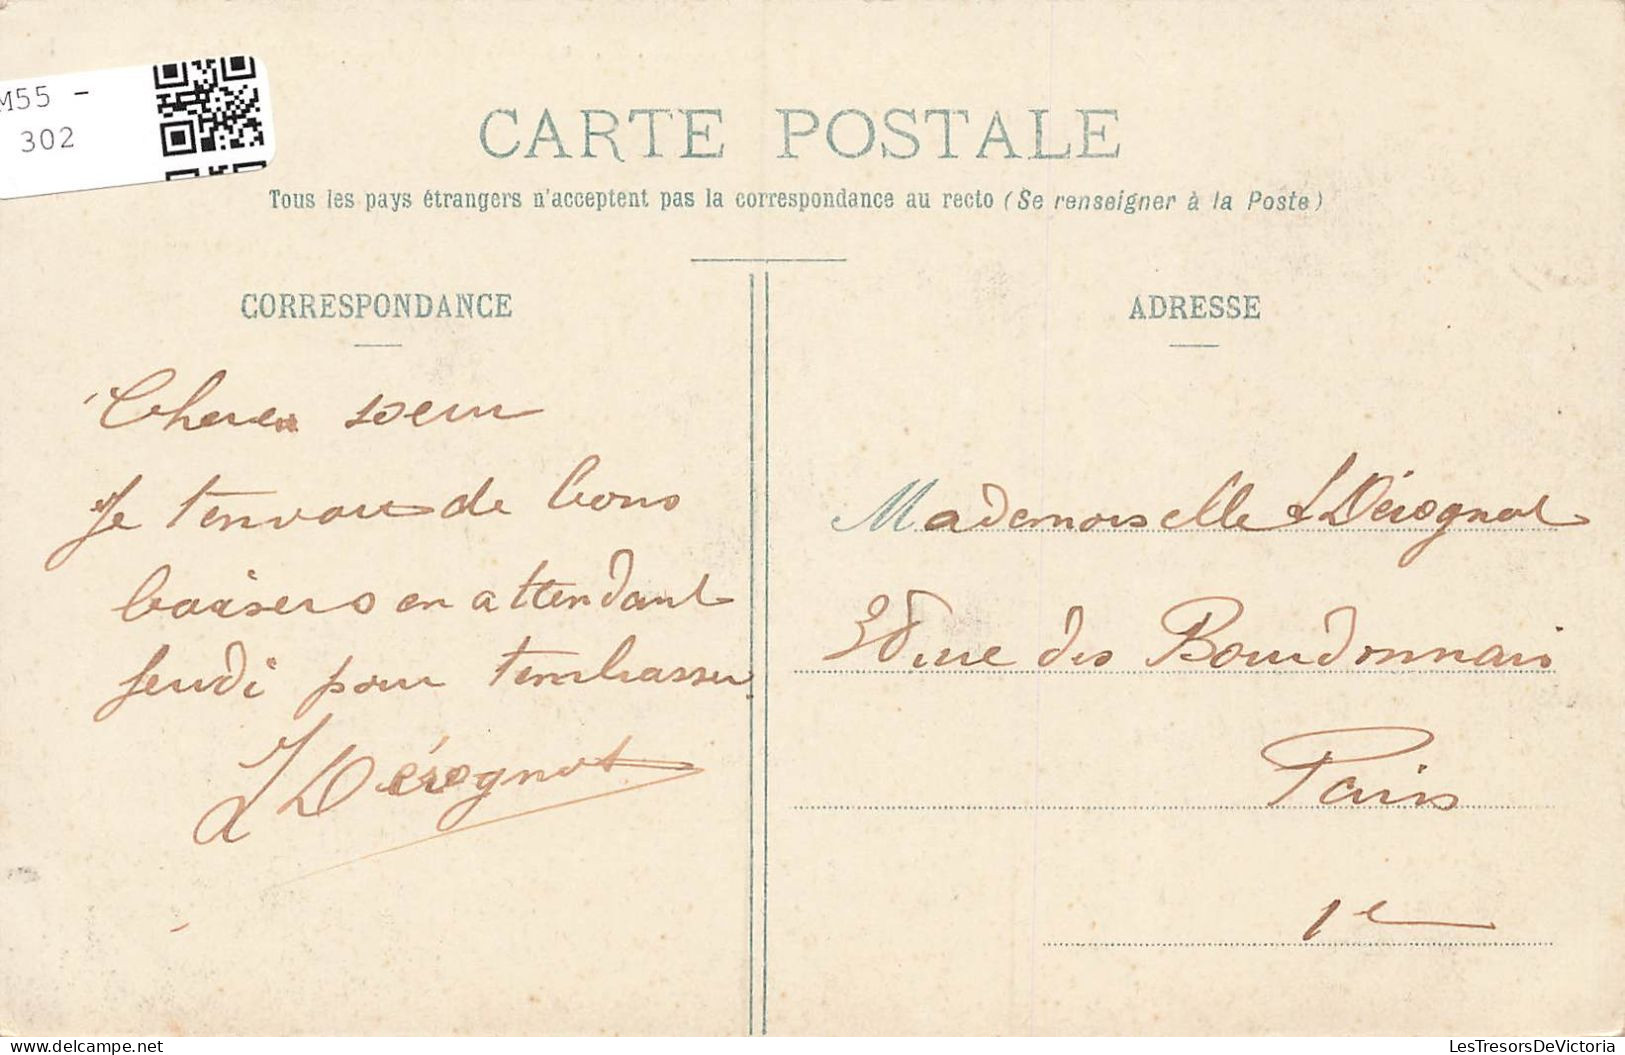 M55 -
302
CARTE POSTALE
Tous les pays étrangers n'acceptent pas la correspondance au recto (Se renseigner à la Poste)
CORRESPONDANCE
Chere soeur
Je t'envoie de bons
baisers en attendant
jeudi pour t'embrasser
J Dérognat
ADRESSE
Mademoiselle L Dérognat
rue des Bourdonnais
Paris
1e
LesTresorsDeVictoria